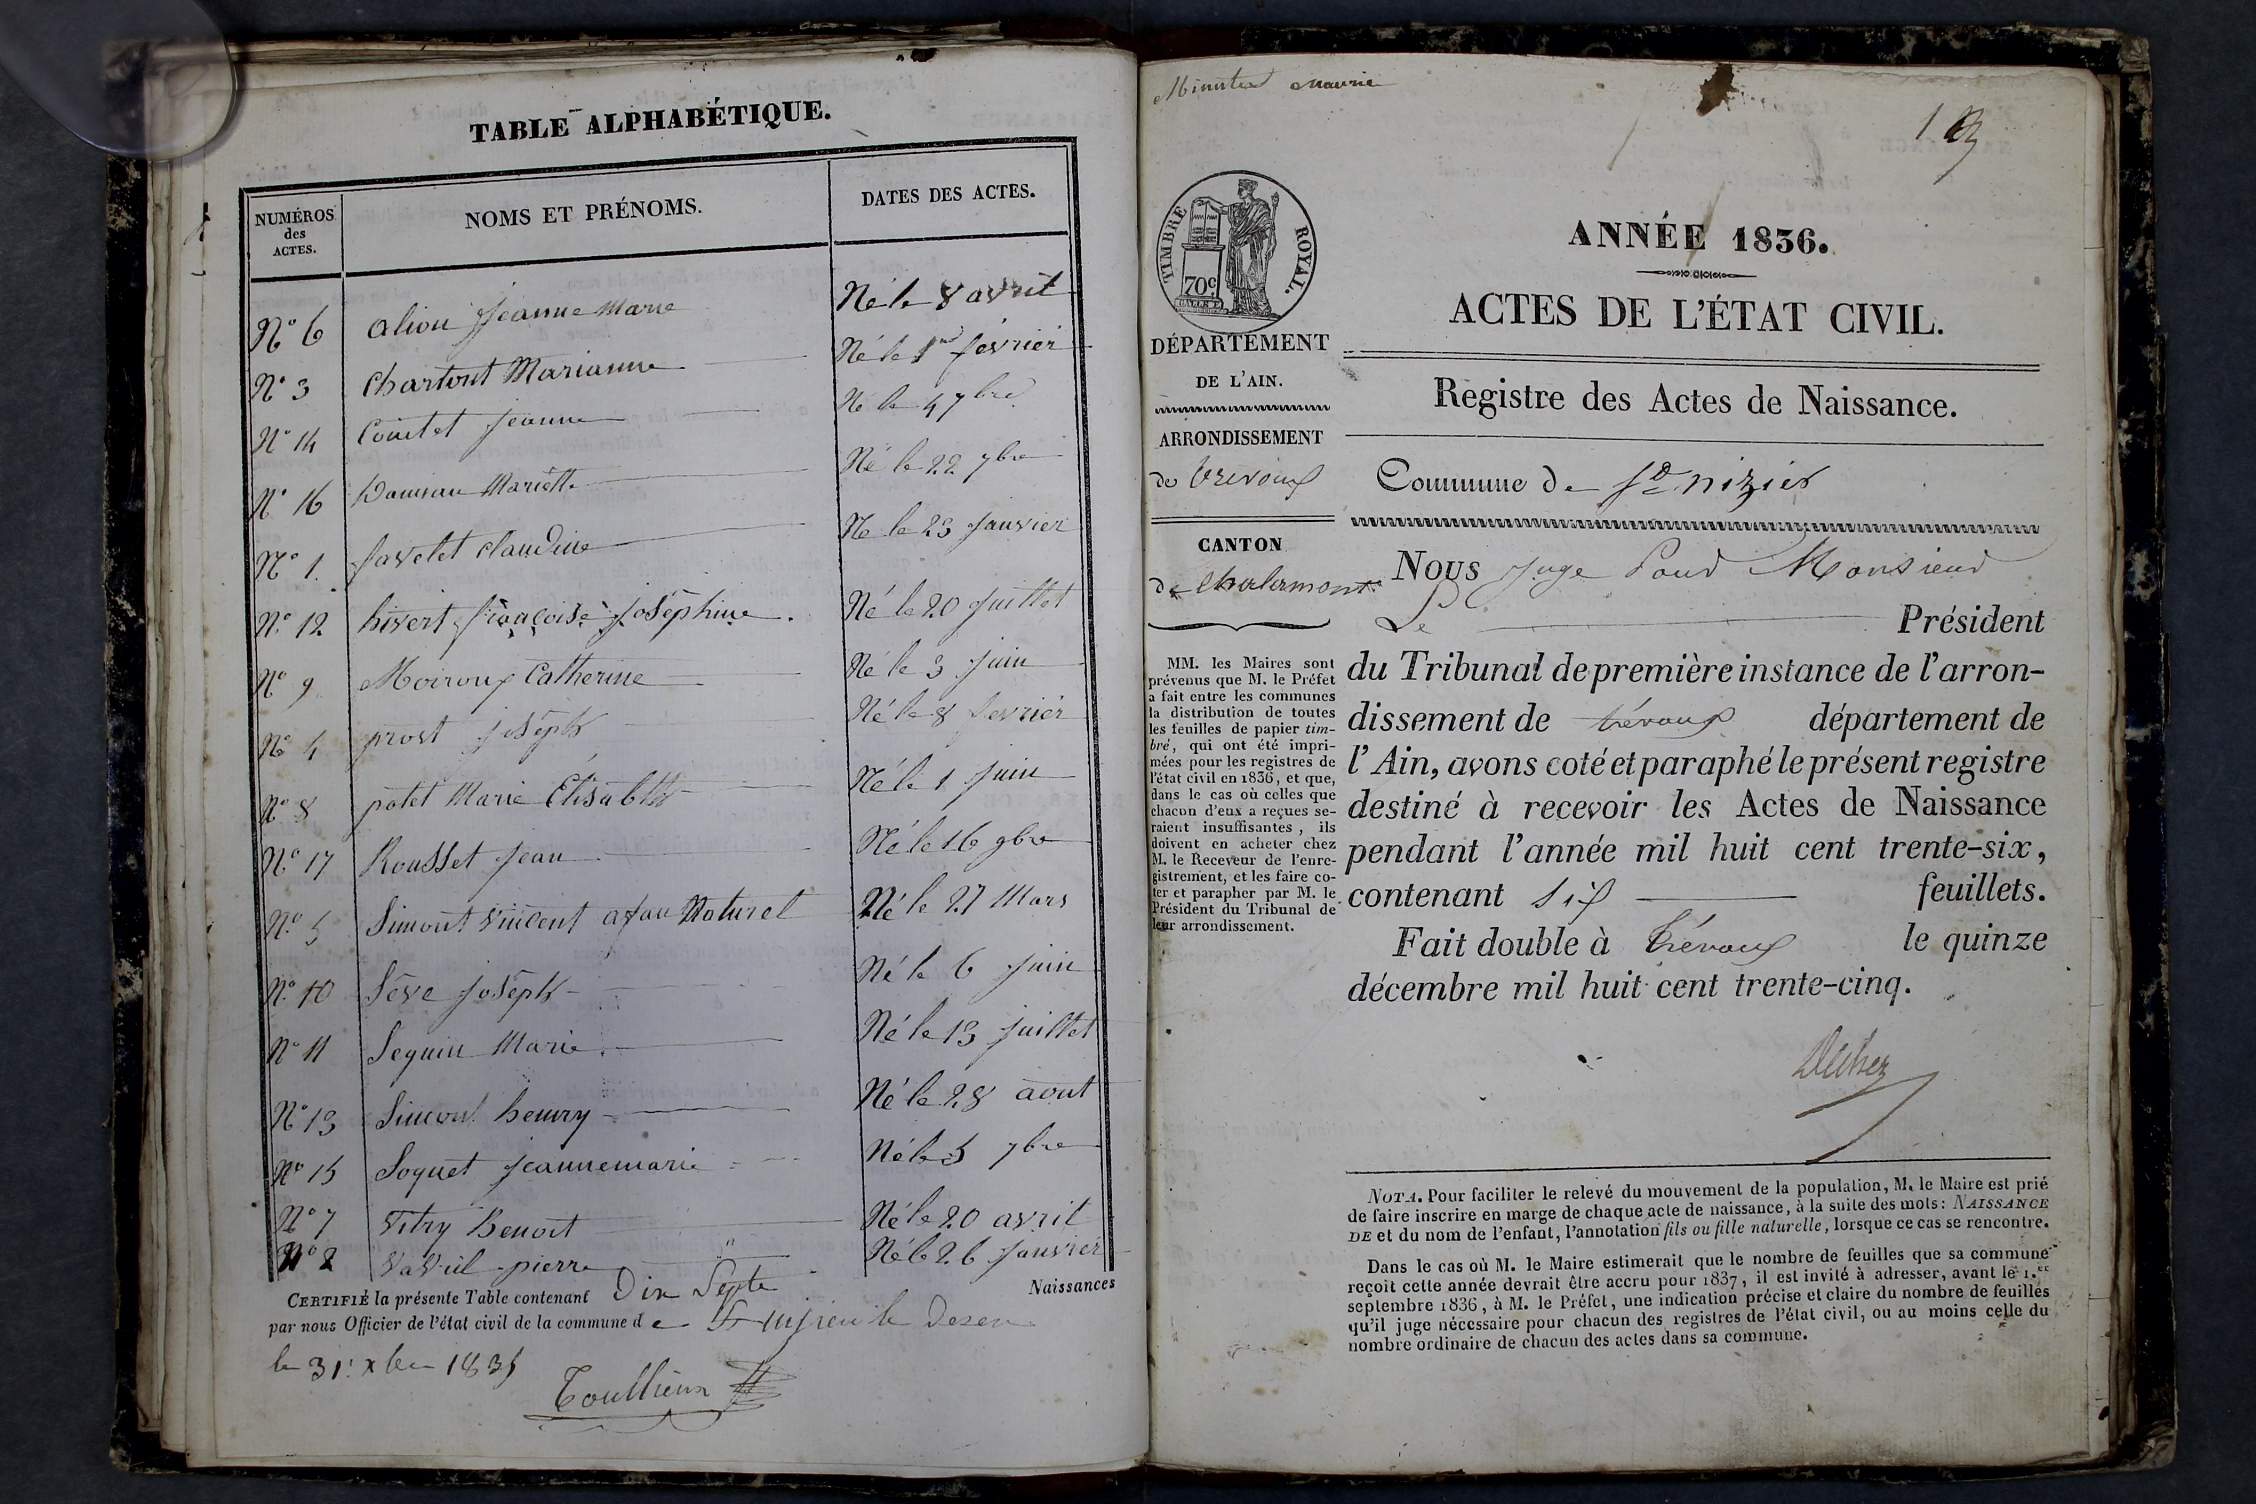 TABLE ALPHABÉTIQUE.
NUMÉROS des ACTES. NOMS ET PRÉNOMS. DATES DES ACTES.
N° 6 aliou Jeanne Marie Né le 8 avril
N° 3 Chartout Marianne Né le 1er février
N° 14 Jeanne Né le 4 7bre
N° 16 Mariette Né le 22 7bre
N° 1. favelet Claudine Né le 23 Janvier
N° 12 hivert françoise Joséphine. Né le 20 Juillet
N° 9 Moiroux Catherine Né le 3 Juin
N° 4 prost joséph Né le 8 fevrier
N° 8 potet Marie Élisabeth Né le 1 Juin
N° 17 Rousset Jean Né le 16 9bre
N° 5 Simont vincent Naturel Né le 27 Mars
N° 10 Séve joséph Né le 6 Juin
N° 11 Seguin Marie. Né le 13 juillet
N° 13 Simont henry Né le 28 aout
N° 15 Soquet jeannemarie Né le 5 7bre
N° 7 Vitry Benoit Né le 20 avril
N° 2 pierre Né le 26 Janvier
CERTIFIÉ la présente Table contenant Dix Septe Naissances
par nous Officier de l'état civil de la commune de le Desert
le 31. xbre 1835
Minutes Mairie
1
TIMBRE ROYAL.
70c.
DÉPARTEMENT
DE L'AIN.
ARRONDISSEMENT
de Trevoux
CANTON
de Chalamont
MM. les Maires sont
prévenus que M. le Préfet
a fait entre les communes
la distribution de toutes
les feuilles de papier tim-
bré, qui ont été impri-
mées pour les registres de
l'état civil en 1836, et que,
dans le cas où celles que
chacun d'eux a reçues se-
raient insuffisantes, ils
doivent en acheter chez
M. le Receveur de l'enre-
gistrement, et les faire co-
ter et parapher par M. le
Président du Tribunal de
leur arrondissement.
ANNÉE 1836.
ACTES DE L'ÉTAT CIVIL.
Registre des Actes de Naissance.
Commune de St nizier
Nous Juge Pour Monsieur
Le Président
du Tribunal de première instance de l'arron-
dissement de trévoux département de
l'Ain, avons coté et paraphé le présent registre
destiné à recevoir les Actes de Naissance
pendant l'année mil huit cent trente-six,
contenant six feuillets.
Fait double à Trévoux le quinze
décembre mil huit cent trente-cinq.
NOTA. Pour faciliter le relevé du mouvement de la population, M. le Maire est prié
de faire inscrire en marge de chaque acte de naissance, à la suite des mots: NAISSANCE
DE et du nom de l'enfant, l'annotation fils ou fille naturelle, lorsque ce cas se rencontre.
Dans le cas où M. le Maire estimerait que le nombre de feuilles que sa commune
reçoit cette année devrait être accru pour 1837, il est invité à adresser, avant le 1.er
septembre 1836, à M. le Préfet, une indication précise et claire du nombre de feuilles
qu'il juge nécessaire pour chacun des registres de l'état civil, ou au moins celle du
nombre ordinaire de chacun des actes dans sa commune.